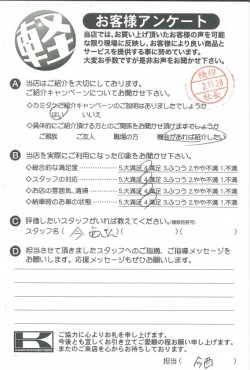 軽
お客様アンケート
当店では、お買い上げ頂いたお客様の声を可能
な限り現場に反映し、お客様により良い商品と
サービスを提供する事に努めています。
大変お手数ですが是非お声をお聞かせ下さい。
検印
2.11.28
社長
A 当店はご紹介を大切にしております。
ご紹介キャンペーンについてお聞かせ下さい。
◇カミタケご紹介キャンペーンのご説明はありましたでしょうか
はい いいえ
◇具体的にご紹介頂ける方とのご関係をお聞かせ頂けますでしょうか
ご親族 ご友人 職場の方 機会があれば紹介したい
B 当店を実際にご利用になった印象をお聞かせ下さい。
◇総合的な満足度 5.大満足 4.満足 3.ふつう 2.やや不満 1.不満
◇スタッフの対応 5.大満足 4.満足 3.ふつう 2.やや不満 1.不満
◇お店の雰囲気、清掃 5.大満足 4.満足 3.ふつう 2.やや不満 1.不満
◇納車時のお車の状態 5.大満足 4.満足 3.ふつう 2.やや不満 1.不満
C 評価したいスタッフがいれば教えてください。(複数回答可)
スタッフ名( 今西さん )
D 担当させて頂きましたスタッフへのご指摘、ご指導メッセージを
お願いします。応援メッセージもぜひお願いします。
K
ご協力に心よりお礼を申し上げます。
今後とも宜しくお引き立てご愛顧の程お願い申し上げます。
またのご来店を心からお待ちしております。
担当( 今西 )